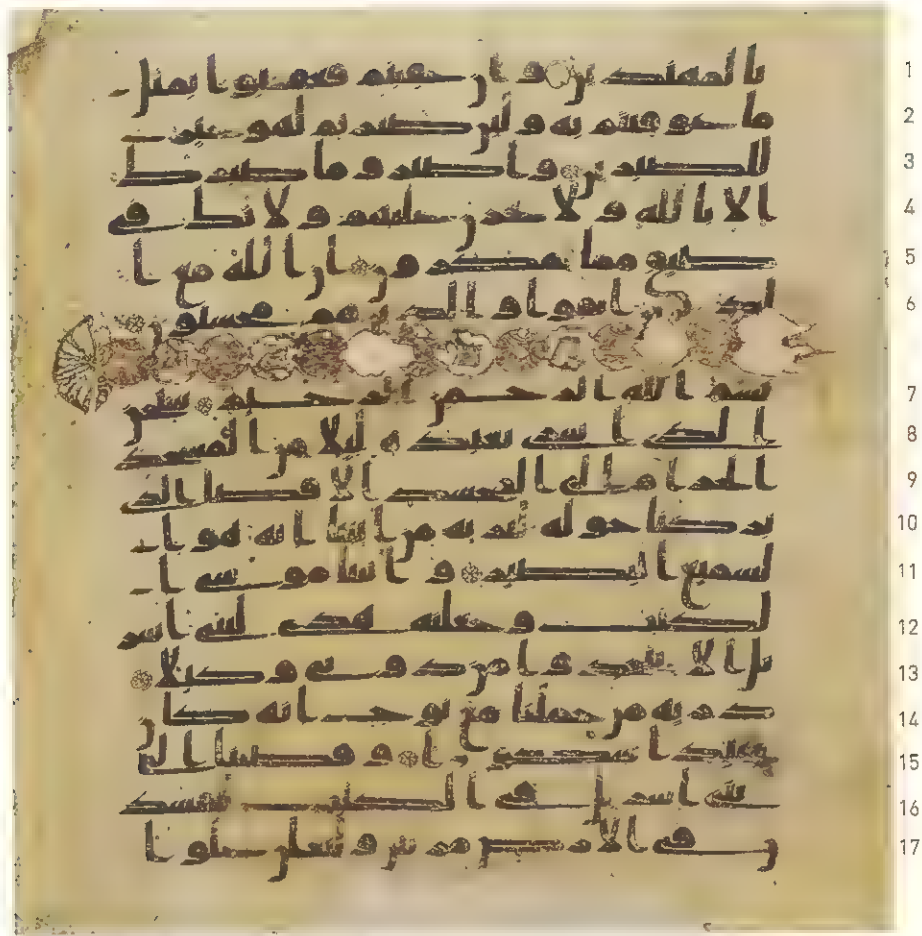 بالمهتدين وان عقبتم فعقبوا بمثل 1
ما عوقبتم به ولئن صبرتم لهو خير 2
للصبرين واصبر وما صبرك 3
الا بالله ولا تحزن عليهم ولا تك في 4
ضيق مما يمكرون ان الله مع ا 5
لذين اتقوا والذين هم محسنون 6
بسم الله الرحمن الرحيم سبحن 7
الذي اسرى بعبده ليلا من المسجد 8
الحرام الى المسجد الاقصا الذ 9
ي بركنا حوله لنريه من ايتنا انه هو ا 10
لسميع البصير واتينا موسى ا 11
لكتب وجعلنه هدى لبني اسر 12
يل الا تتخذوا من دوني وكيلا 13
ذرية من حملنا مع نوح انه كان 14
عبدا شكورا وقضينا الى 15
بني اسريل في الكتب لتفسد 16
ن في الارض مرتين ولتعلن علوا 17